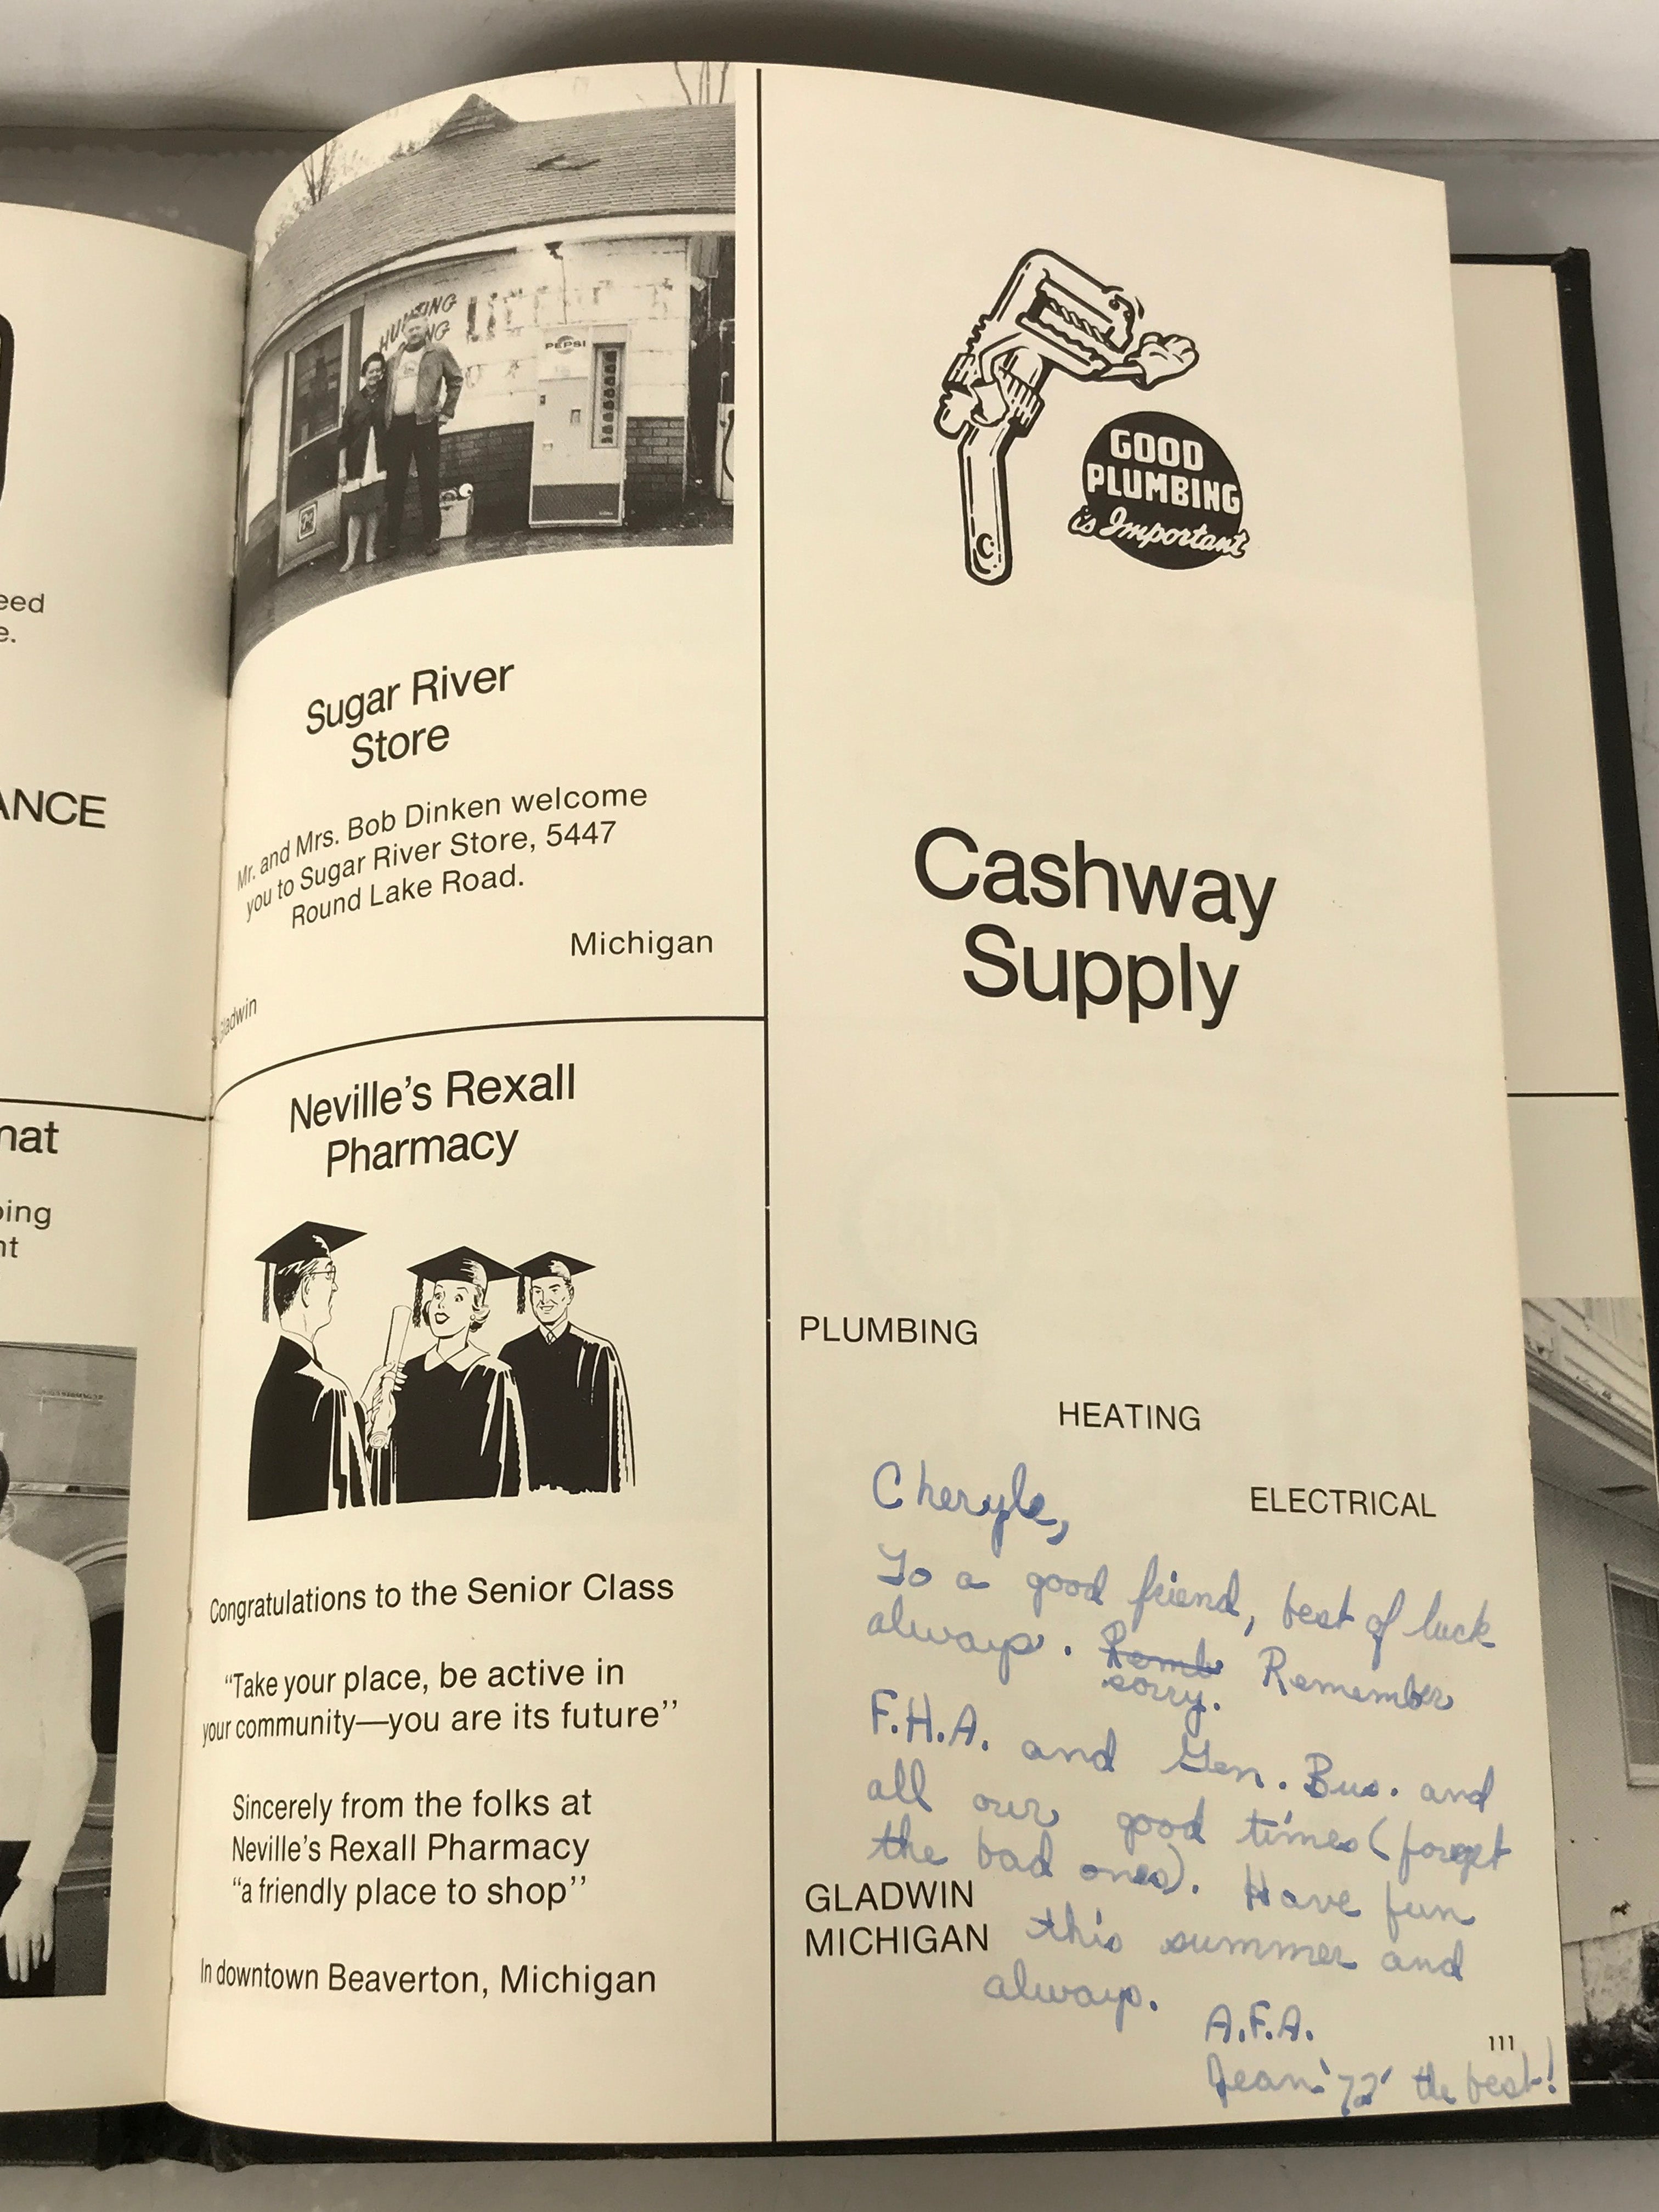 eed
e.
ANCE
nat
ping
nt
HUNTING
PEPSI
Sugar River
Store
Mr. and Mrs. Bob Dinken welcome
you to Sugar River Store, 5447
Round Lake Road.
Gladwin
Michigan
Neville's Rexall
Pharmacy
Congratulations to the Senior Class
"Take your place, be active in
your community—you are its future"
Sincerely from the folks at
Neville's Rexall Pharmacy
"a friendly place to shop"
In downtown Beaverton, Michigan
GOOD
PLUMBING
is Important
C
Cashway
Supply
PLUMBING
HEATING
ELECTRICAL
Cheryle,
To a good friend, best of luck
always. Remb Remember
sorry.
F.H.A. and Gen. Bus. and
all our good times (forget
the bad ones). Have fun
this summer and
always.
GLADWIN
MICHIGAN
A.F.A.
Jean '72' the best!
111